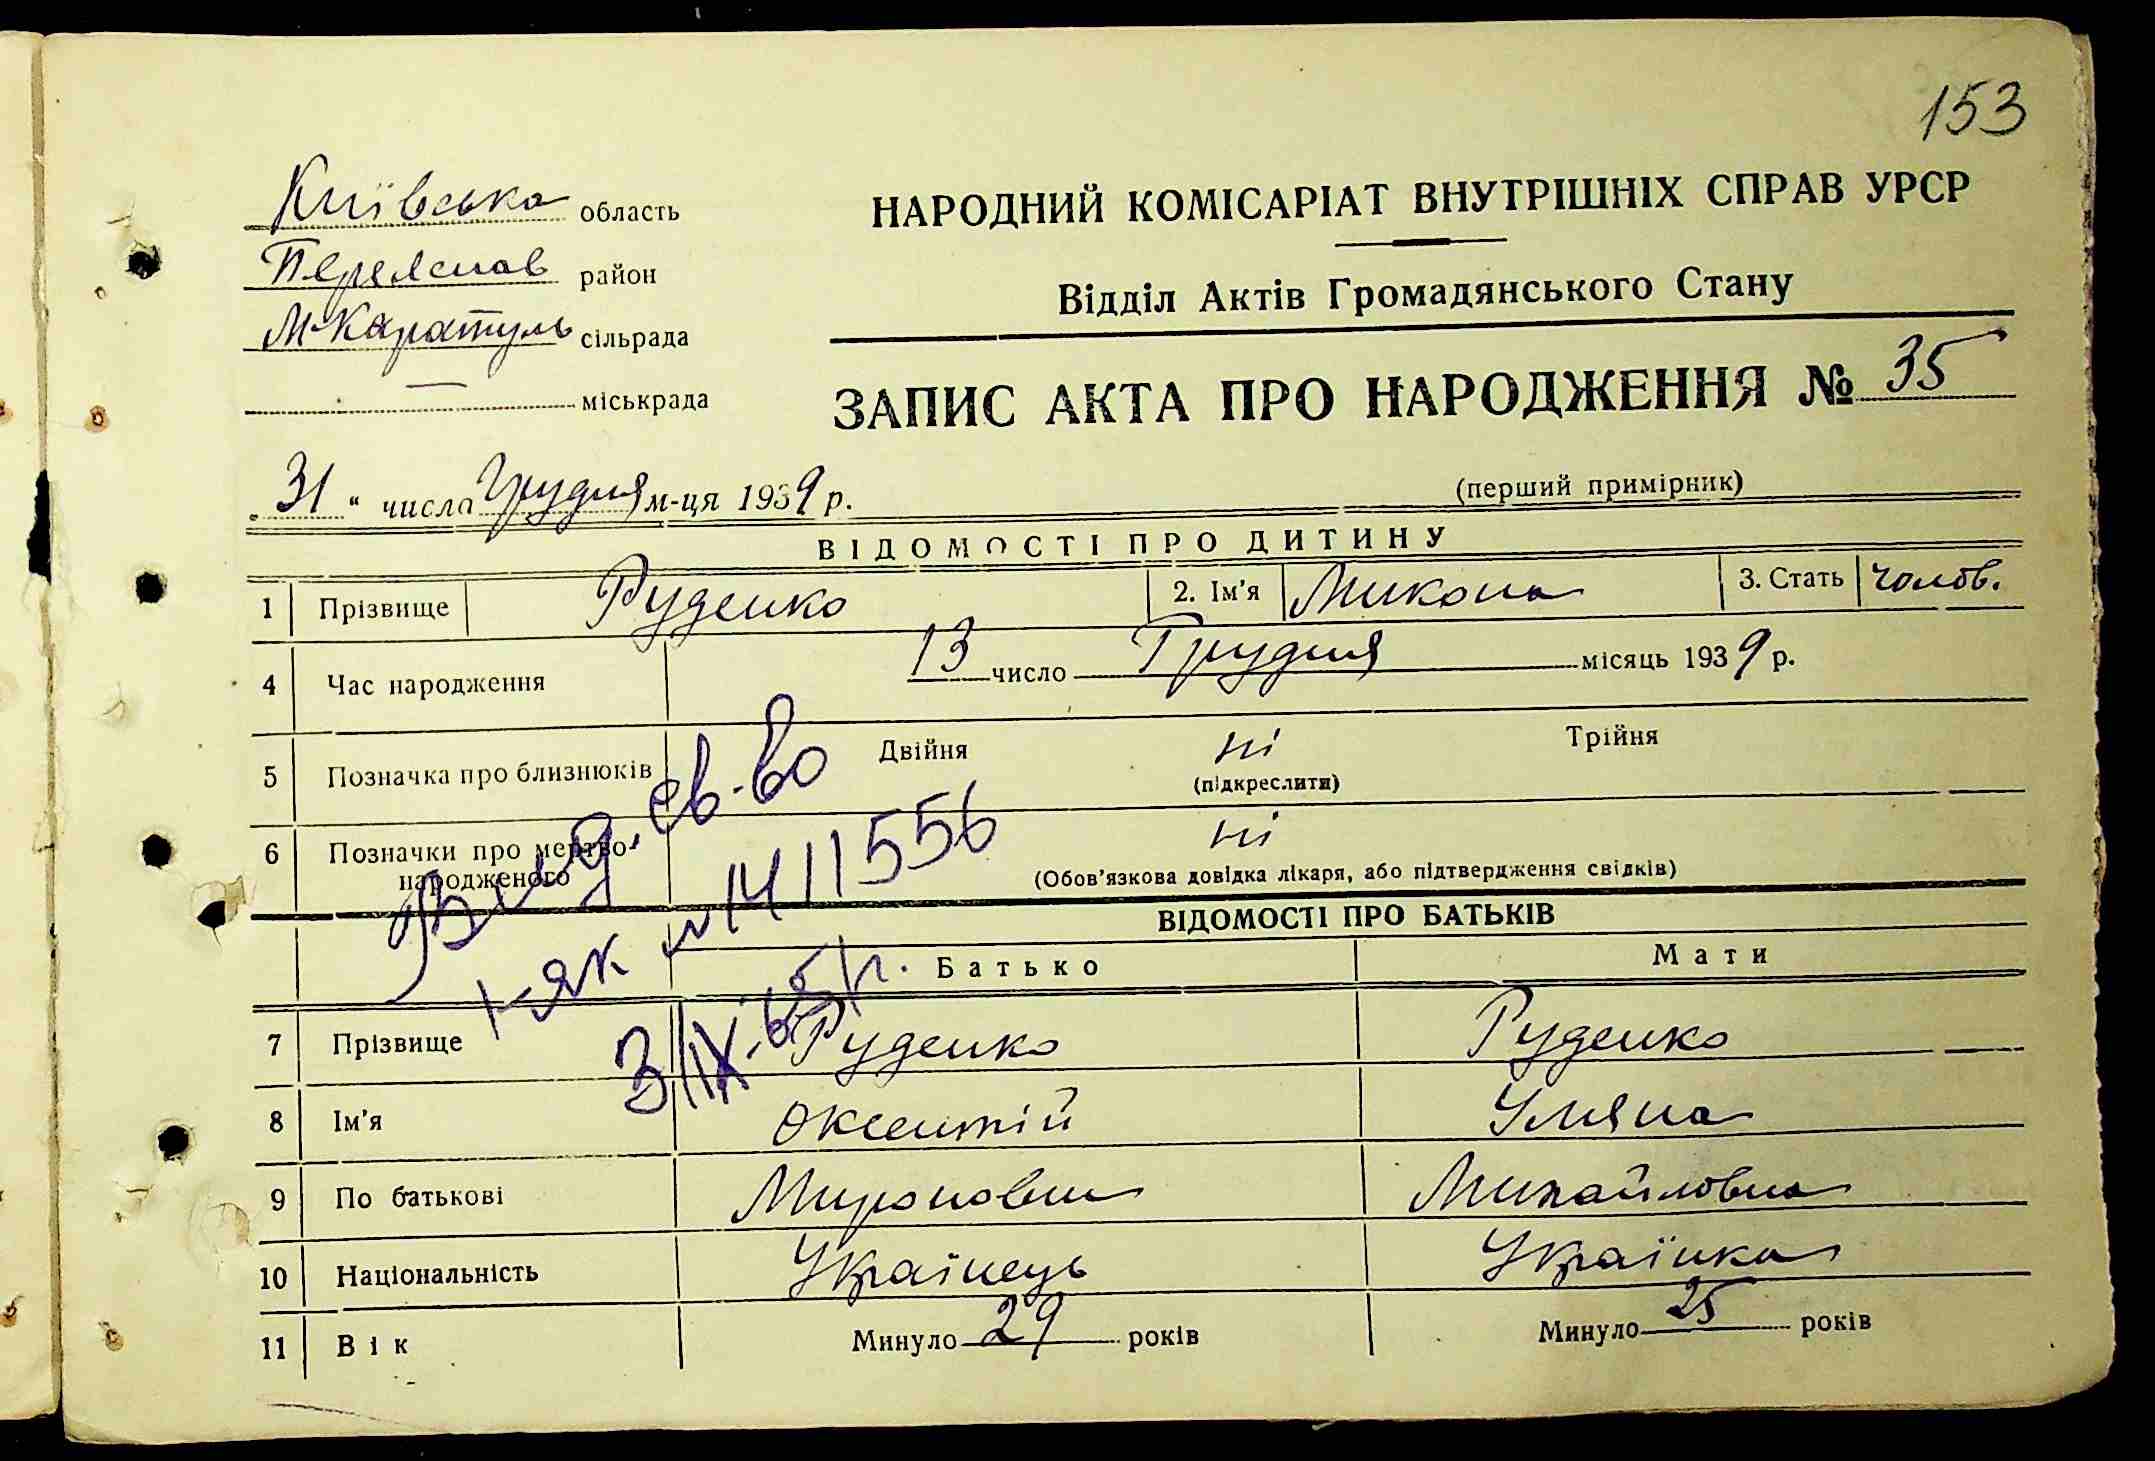 153
Київська область
Переяслав район
М-Каратуль сільрада
міськрада
НАРОДНИЙ КОМІСАРІАТ ВНУТРІШНІХ СПРАВ УРСР
Відділ Актів Громадянського Стану
ЗАПИС АКТА ПРО НАРОДЖЕННЯ № 35
„ 31 “ числа Грудня м-ця 1939 р.
(перший примірник)
ВІДОМОСТІ ПРО ДИТИНУ
1 Прізвище Руденко 2. Ім'я Микола 3. Стать чолов.
4 Час народження 13 число Грудня місяць 1939 р.
5 Позначка про близнюків Двійня ні Трійня
(підкреслити)
6 Позначки про мертво- ні
народженого (Обов'язкова довідка лікаря, або підтвердження свідків)
св-во
1-ЯК №1411556
3/IX-65 р.
ВІДОМОСТІ ПРО БАТЬКІВ
Батько Мати
7 Прізвище Руденко Руденко
8 Ім'я Оксентій Уляна
9 По батькові Миронович Михайловна
10 Національність Українець Українка
11 Вік Минуло 29 років Минуло 25 років